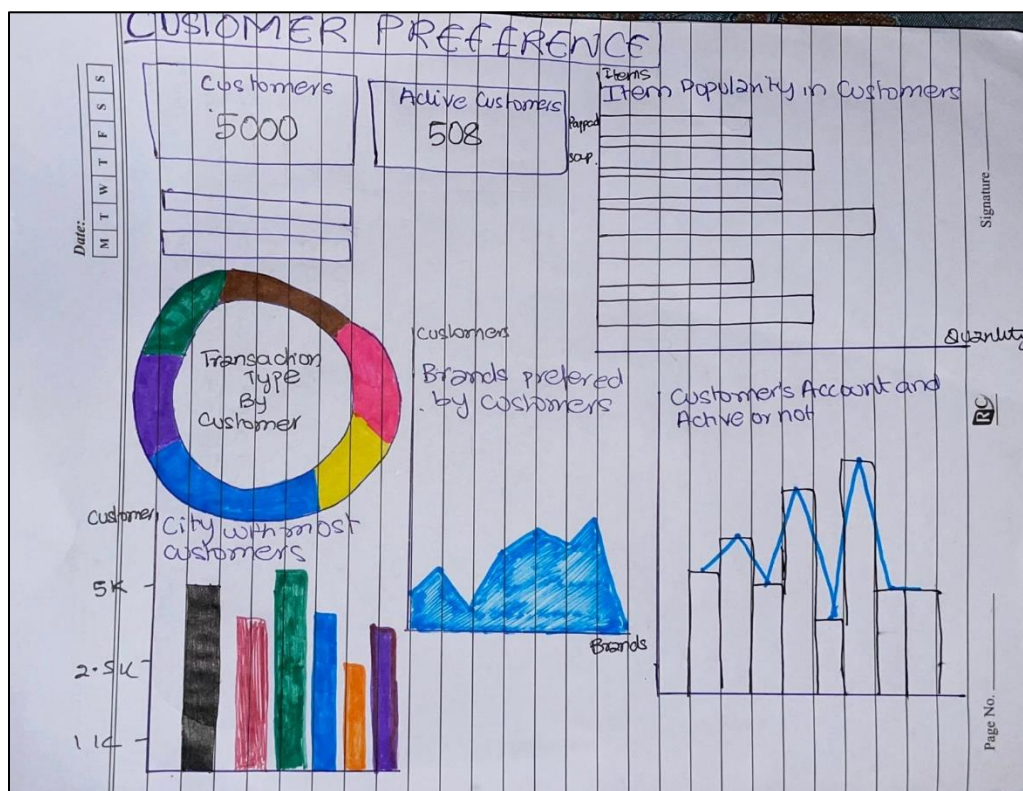 CUSTOMER PREFERENCE
Customers
5000
Active Customers
508
Items
Item Popularity in Customers
Pappad
Soap.
Quantity
Date:
M T W T F S S
Signature
Transaction
Type
By
Customer
Customers
Brands prefered
by customers
Brands
Customer's Account and
Active or not
RC
Customer
City with most
customers
5K
2.5K
1K
Page No.